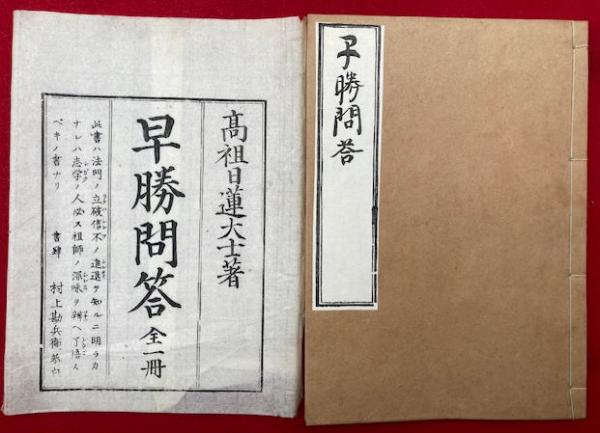 高祖日蓮大士著
早勝問答 全一冊
此書ハ法門ノ立破信不ノ進退ヲ知ルニ明ラカ
ナレハ志学ノ人必ス祖師ノ深味ヲ辨ヘ了悟ス
ベキノ書ナリ
書肆 村上勘兵衛
早勝問答